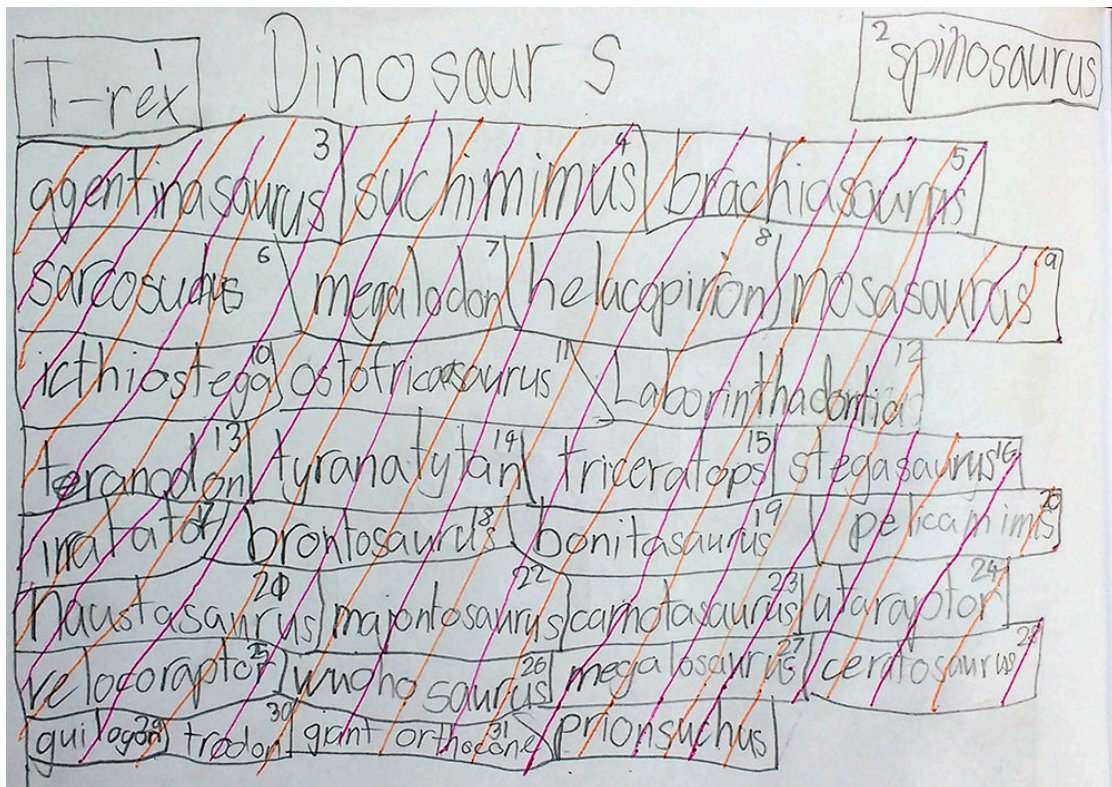 T-rex 1 Dinosaurs 2 spinosaurus
agentinasaurus 3 suchimimus 4 brachiasaurus 5
sarcosuchus 6 megalodon 7 helacopirion 8 mosasaurus 9
icthiostega 10 ostofricaasaurus 11 Laborinthadontia 12
teranodon 13 tyranatytan 14 triceratops 15 stegasaurus 16
irratator 17 brontosaurus 18 bonitasaurus 19 pelicamimis 20
haustasaurus 21 majontosaurus 22 carnotasaurus 23 utaraptor 24
velocoraptor 25 wuohosaurus 26 megalosaurus 27 ceratosaurus 28
guilogon 29 trodont 30 giant orthocone 31 prionsuchus